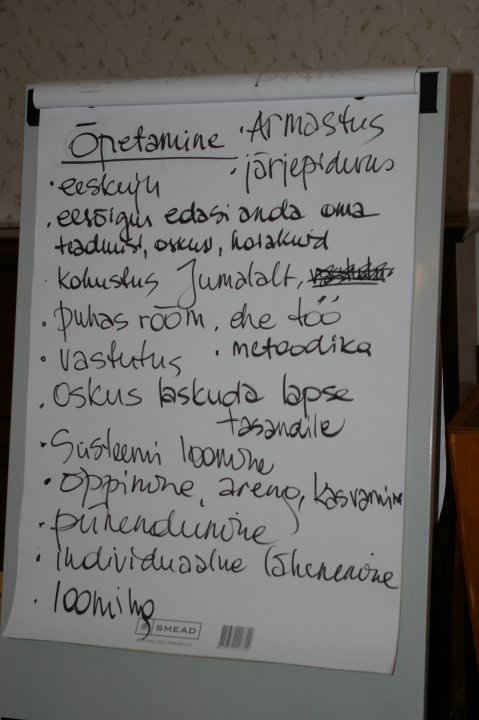 Õpetamine • Armastus
• eeskuju • järjepidevus
• eesõigus edasi anda oma
teadmisi, oskusi, hoiakuid
• kohustus Jumalalt,
• puhas rõõm, ehe töö
• vastutus • metoodika
• oskus laskuda lapse
tasandile
• Süsteemi loomine
• õppimine, areng, kasvamine
• pühendumine
• individuaalne lähenemine
• looming
SMEAD